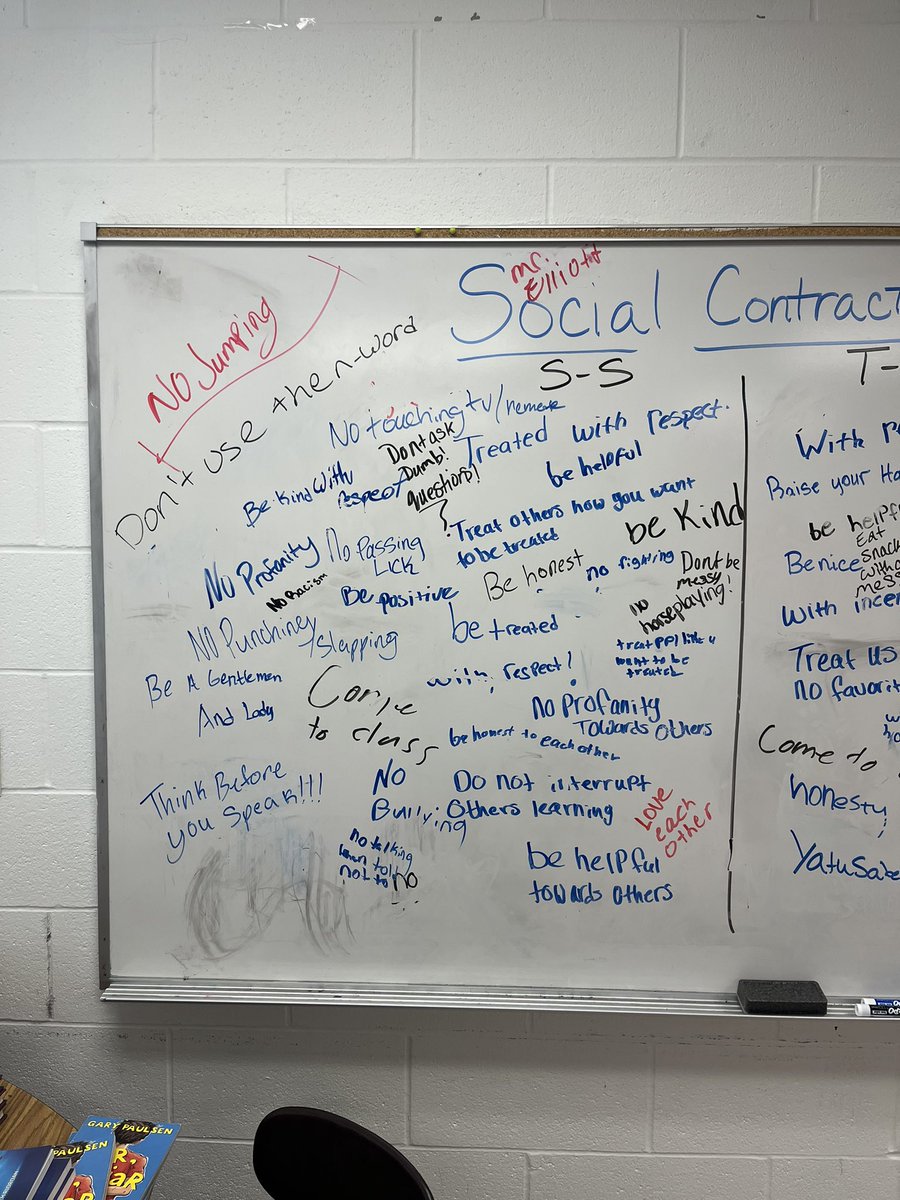 mr.
Elliott
Social Contract
S-S
T-
No Jumping
Don't use the n-word
No touching tv/remote
Dont ask
Dumb!
questions!
Treated with respect.
be helpful
Be Kind With
respect
Treat others how you want
to be treated
be Kind
No Profanity
No Passing
Lick
No racism
Be positive
Be honest
no fighting
Dont be
messy
no
horseplaying!
NO Punching
/Slapping
be treated
with respect!
treat ppl like u
want to be
treated
Be A Gentlemen
And Lady
Come
to class
no Profanity
Towards Others
be honest to each other
Think Before
you Speak!!!
No
Bullying
Do not interrupt
Others learning
Love
each
other
no talking
when told
not to
no
be helpful
towards others
With r
Raise your Ha
be helpfu
Eat
snack
witho
mess
Be nice
With
Treat us
no favorit
Come to
honesty
GARY PAULSEN
PAULSEN